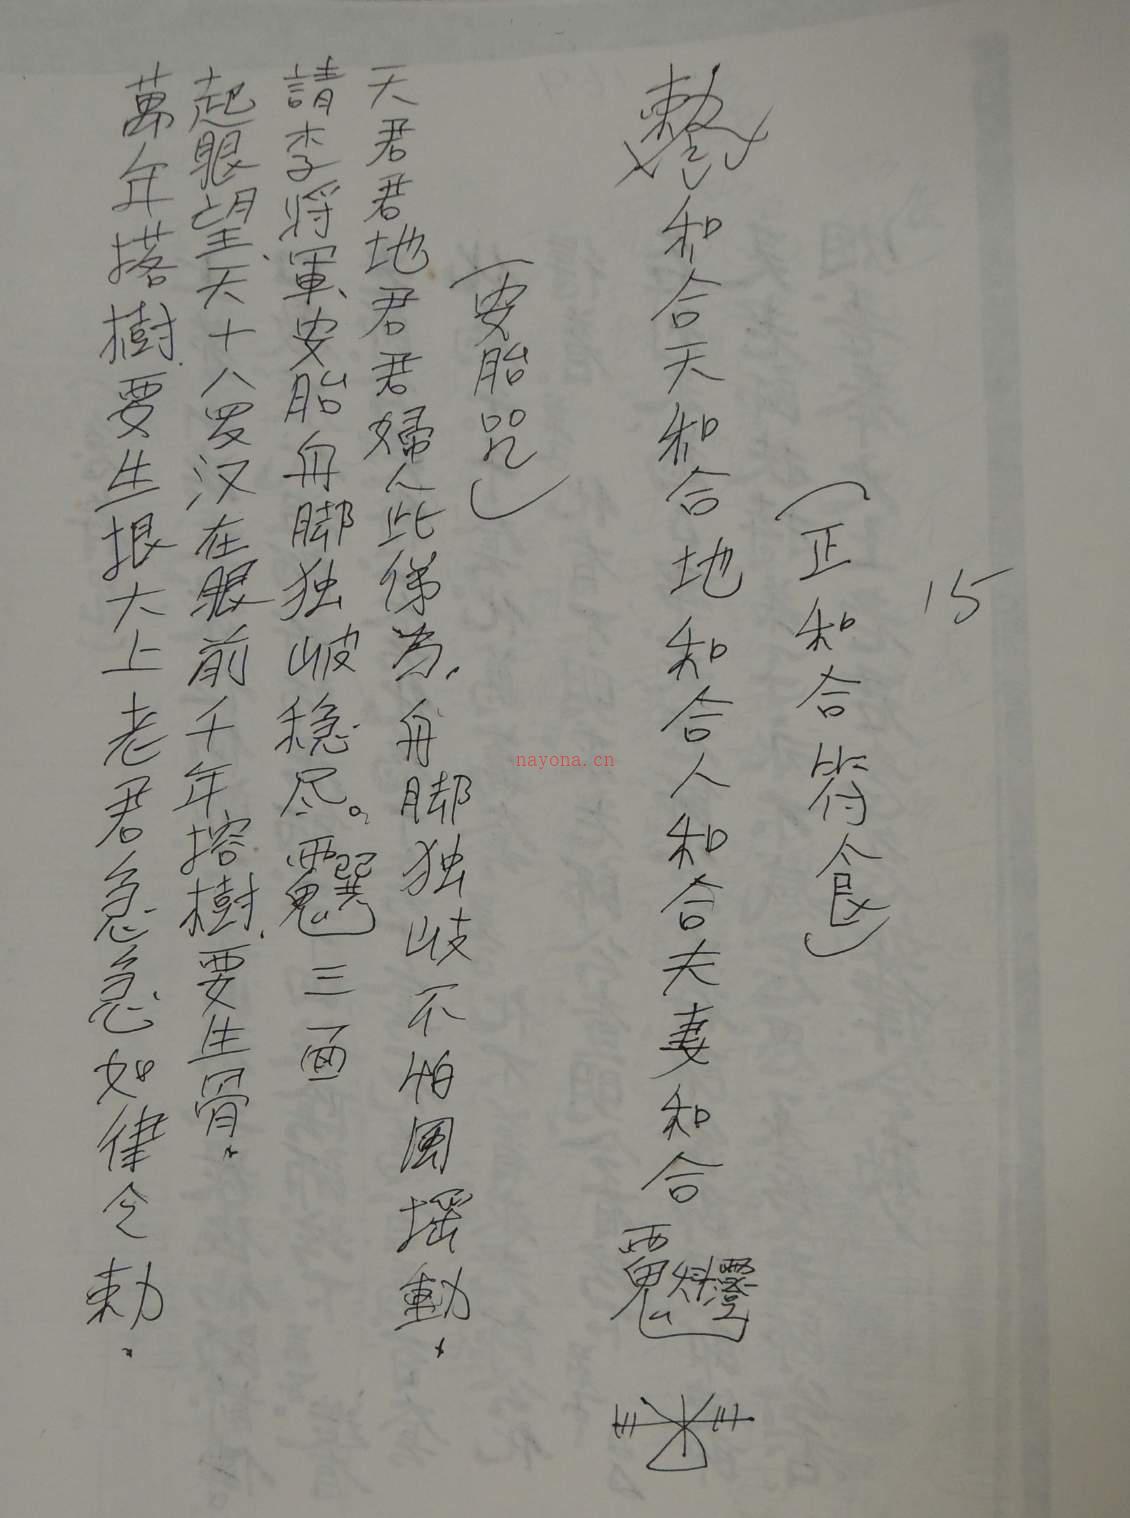 15
(正和合符食)
和合天和合地和合人和合夫妻和合
(安胎咒)
天君君地君君婦人此俤為.舟脚独岐不怕風摇動.
請李将軍、安胎舟脚独岐稳尽。三面
起眼望天十八罗汉在眼前千年榕樹.要生骨.
萬年搭樹.要生根大上老君急急如律令勅.
nayona.cn